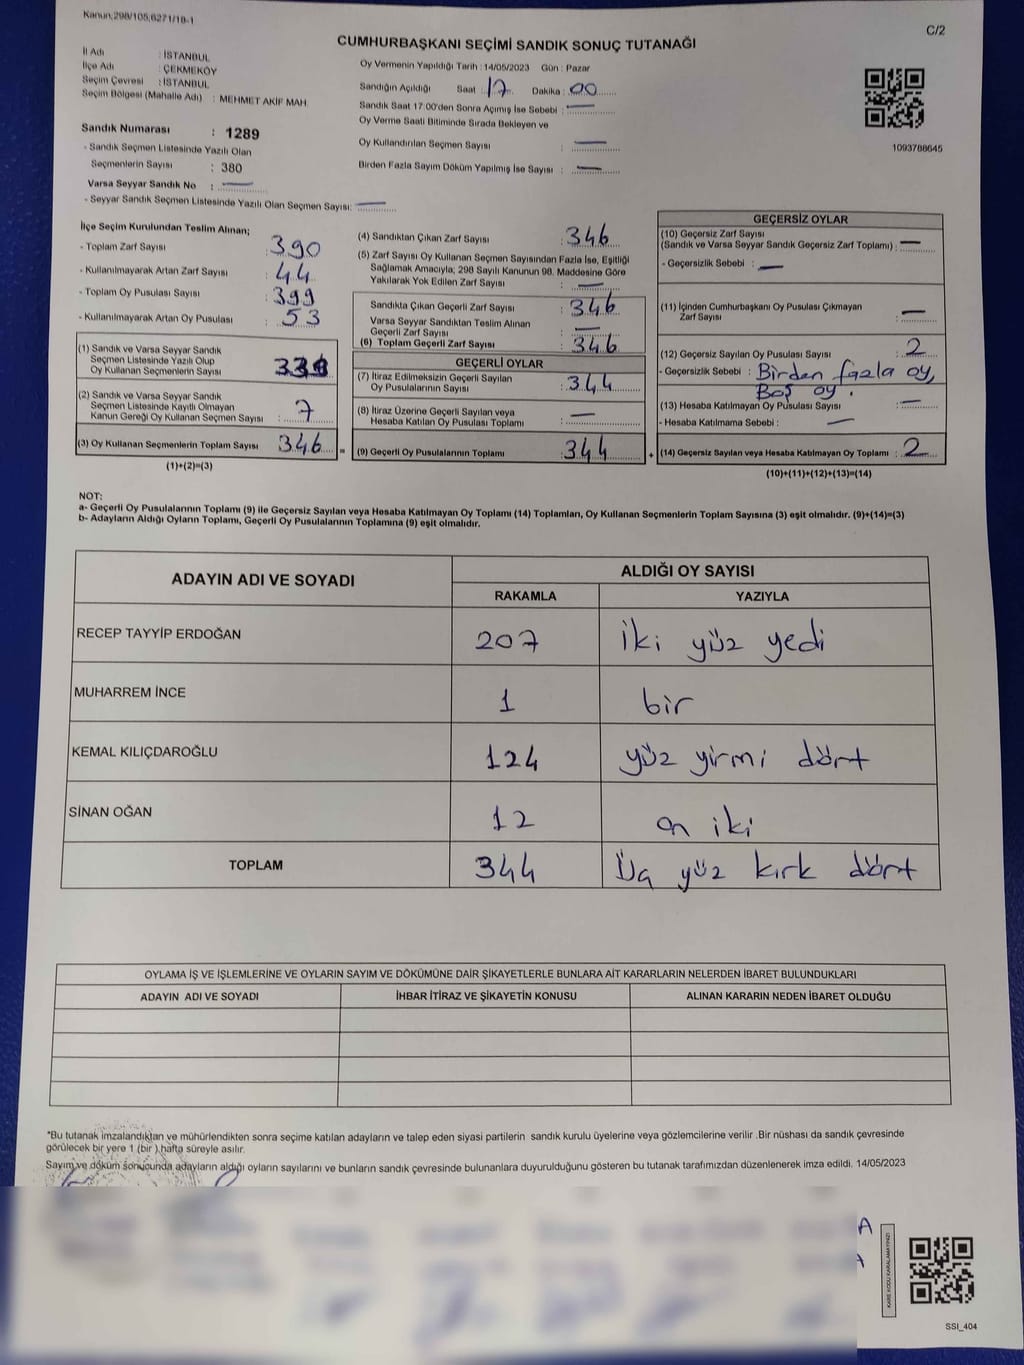 Kanun;298/105,6271/18-1
C/2
CUMHURBAŞKANI SEÇİMİ SANDIK SONUÇ TUTANAĞI
İl Adı : İSTANBUL
İlçe Adı : ÇEKMEKÖY
Seçim Çevresi : İSTANBUL
Seçim Bölgesi (Mahalle Adı) : MEHMET AKİF MAH.
Sandık Numarası : 1289
- Sandık Seçmen Listesinde Yazılı Olan
Seçmenlerin Sayısı : 380
Varsa Seyyar Sandık No : —
- Seyyar Sandık Seçmen Listesinde Yazılı Olan Seçmen Sayısı: —
Oy Vermenin Yapıldığı Tarih : 14/05/2023 Gün : Pazar
Sandığın Açıldığı Saat : 17 Dakika : 00
Sandık Saat 17:00'den Sonra Açımış İse Sebebi : —
Oy Verme Saati Bitiminde Sırada Bekleyen ve
Oy Kullandırılan Seçmen Sayısı : —
Birden Fazla Sayım Döküm Yapılmış İse Sayısı : —
1093788645
İlçe Seçim Kurulundan Teslim Alınan;
- Toplam Zarf Sayısı : 390
- Kullanılmayarak Artan Zarf Sayısı : 44
- Toplam Oy Pusulası Sayısı : 399
- Kullanılmayarak Artan Oy Pusulası : 53
(1) Sandık ve Varsa Seyyar Sandık
Seçmen Listesinde Yazılı Olup
Oy Kullanan Seçmenlerin Sayısı : 339
(2) Sandık ve Varsa Seyyar Sandık
Seçmen Listesinde Kayıtlı Olmayan
Kanun Gereği Oy Kullanan Seçmen Sayısı : 7
(3) Oy Kullanan Seçmenlerin Toplam Sayısı : 346
(1)+(2)=(3)
(4) Sandıktan Çıkan Zarf Sayısı : 346
(5) Zarf Sayısı Oy Kullanan Seçmen Sayısından Fazla İse, Eşitliği
Sağlamak Amacıyla; 298 Sayılı Kanunun 98. Maddesine Göre
Yakılarak Yok Edilen Zarf Sayısı : —
Sandıkta Çıkan Geçerli Zarf Sayısı : 346
Varsa Seyyar Sandıktan Teslim Alınan
Geçerli Zarf Sayısı : —
(6) Toplam Geçerli Zarf Sayısı : 346
GEÇERLİ OYLAR
(7) İtiraz Edilmeksizin Geçerli Sayılan
Oy Pusulalarının Sayısı : 344
(8) İtiraz Üzerine Geçerli Sayılan veya
Hesaba Katılan Oy Pusulası Toplamı : —
= (9) Geçerli Oy Pusulalarının Toplamı : 344
GEÇERSİZ OYLAR
(10) Geçersiz Zarf Sayısı
(Sandık ve Varsa Seyyar Sandık Geçersiz Zarf Toplamı) : —
- Geçersizlik Sebebi : —
(11) İçinden Cumhurbaşkanı Oy Pusulası Çıkmayan
Zarf Sayısı : —
(12) Geçersiz Sayılan Oy Pusulası Sayısı : 2
- Geçersizlik Sebebi : Birden fazla oy,
Boş oy.
(13) Hesaba Katılmayan Oy Pusulası Sayısı : —
- Hesaba Katılmama Sebebi : —
+ (14) Geçersiz Sayılan veya Hesaba Katılmayan Oy Toplamı : 2
(10)+(11)+(12)+(13)=(14)
NOT:
a- Geçerli Oy Pusulalarının Toplamı (9) ile Geçersiz Sayılan veya Hesaba Katılmayan Oy Toplamı (14) Toplamları, Oy Kullanan Seçmenlerin Toplam Sayısına (3) eşit olmalıdır. (9)+(14)=(3)
b- Adayların Aldığı Oyların Toplamı, Geçerli Oy Pusulalarının Toplamına (9) eşit olmalıdır.
ADAYIN ADI VE SOYADI
ALDIĞI OY SAYISI
RAKAMLA YAZIYLA
RECEP TAYYİP ERDOĞAN 207 iki yüz yedi
MUHARREM İNCE 1 bir
KEMAL KILIÇDAROĞLU 124 yüz yirmi dört
SİNAN OĞAN 12 on iki
TOPLAM 344 Üç yüz kırk dört
OYLAMA İŞ VE İŞLEMLERİNE VE OYLARIN SAYIM VE DÖKÜMÜNE DAİR ŞİKAYETLERLE BUNLARA AİT KARARLARIN NELERDEN İBARET BULUNDUKLARI
ADAYIN ADI VE SOYADI İHBAR İTİRAZ VE ŞİKAYETİN KONUSU ALINAN KARARIN NEDEN İBARET OLDUĞU
*Bu tutanak imzalandıktan ve mühürlendikten sonra seçime katılan adayların ve talep eden siyasi partilerin sandık kurulu üyelerine veya gözlemcilerine verilir .Bir nüshası da sandık çevresinde
görülecek bir yere 1 (bir ) hafta süreyle asılır.
Sayım ve döküm sonucunda adayların aldığı oyların sayılarını ve bunların sandık çevresinde bulunanlara duyurulduğunu gösteren bu tutanak tarafımızdan düzenlenerek imza edildi. 14/05/2023
A
KARE KODU KARALAMAYINIZ!
SSI_404